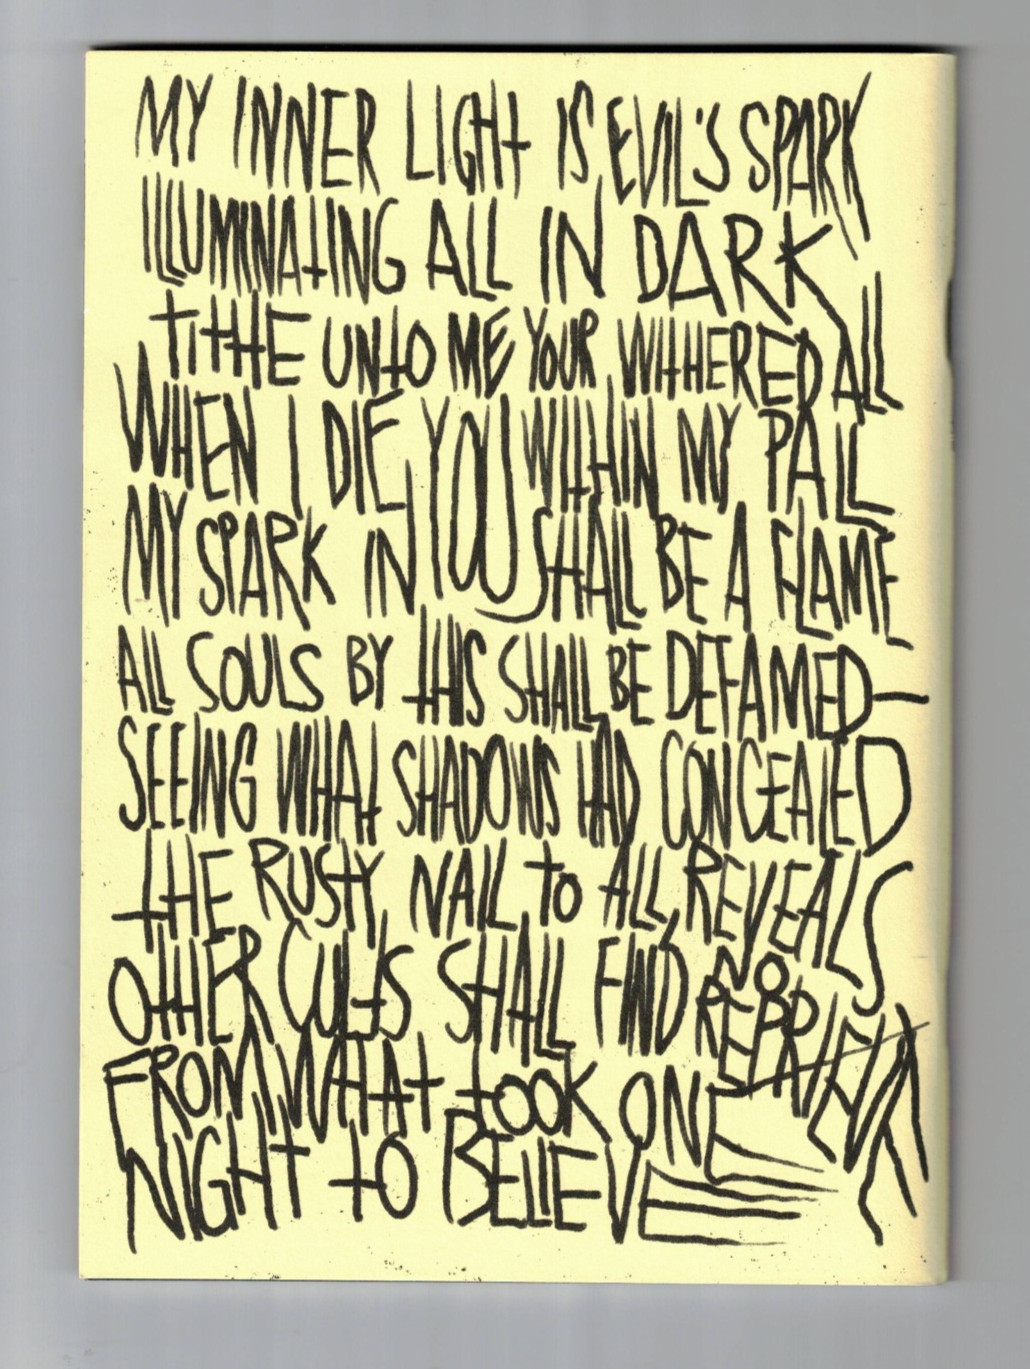 MY INNER LIGHT IS EVIL'S SPARK
ILLUMINATING ALL IN DARK
TITHE UNTO ME YOUR WITHERED ALL
WHEN I DIE, YOU WITHIN MY PALL
MY SPARK IN YOU SHALL BE A FLAME
ALL SOULS BY THIS SHALL BE DEFAMED—
SEEING WHAT SHADOWS HAD CONCEALED
THE RUSTY NAIL, TO ALL, REVEALS
OTHER CULTS SHALL FIND NO REPRIEVE
FROM WHAT TOOK ONE
NIGHT TO BELIEVE